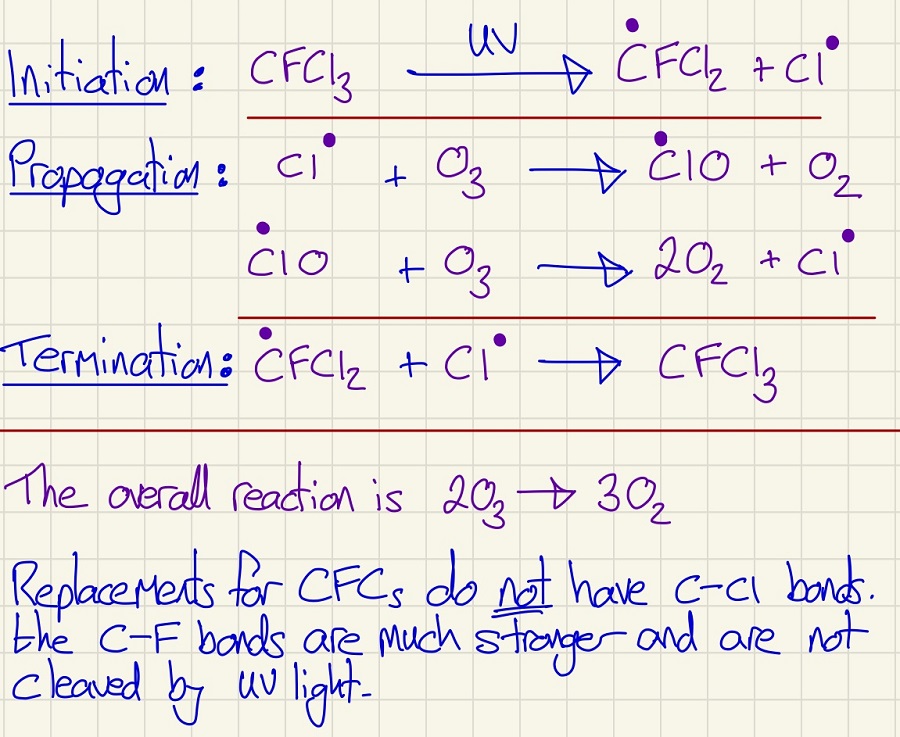 Initiation : CFCl₃ UV → •CFCl₂ + Cl•
Propagation : Cl• + O₃ → •ClO + O₂
•ClO + O₃ → 2O₂ + Cl•
Termination: •CFCl₂ + Cl• → CFCl₃
The overall reaction is 2O₃ → 3O₂
Replacements for CFCs do not have C-Cl bonds.
the C-F bonds are much stronger and are not
cleaved by UV light.